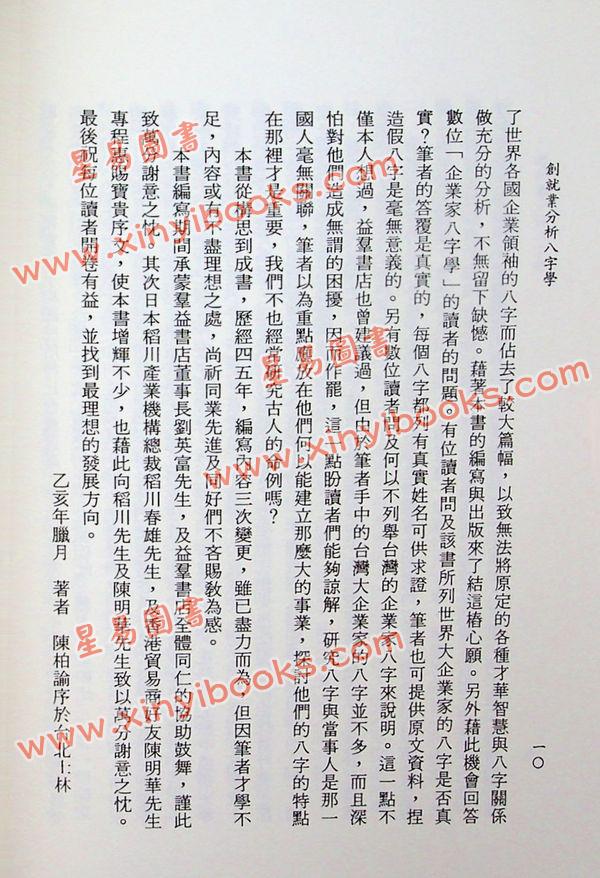 創就業分析八字學
一〇
了世界各國企業領袖的八字而佔去了較大篇幅，以致無法將原定的各種才華智慧與八字關係
做充分的分析，不無留下缺憾。藉著本書的編寫與出版來了結這樁心願。另外藉此機會回答
數位「企業家八字學」的讀者的問題。有位讀者問及該書所列世界大企業家的八字是否真
實？筆者的答覆是真實的，每個八字都列有真實姓名可供求證，筆者也可提供原文資料，捏
造假八字是毫無意義的。另有數位讀者問及何以不列舉台灣的企業家八字來說明。這一點不
僅本人想過，益羣書店也曾建議過，但由於筆者手中的台灣大企業家的八字並不多，而且深
怕對他們造成無謂的困擾，因而作罷，這一點盼讀者們能夠諒解，研究八字與當事人是那一
國人毫無關聯，筆者以為重點應放在他們何以能建立那麼大的事業，探討他們的八字的特點
在那裡才是重要，我們不也經常研究古人的命例嗎？
本書從構思到成書，歷經四五年，編寫內容三次變更，雖已盡力而為，但因筆者才學不
足，內容或有不盡理想之處，尚祈同業先進及同好們不吝賜教為感。
本書編寫期間承蒙羣益書店董事長劉英富先生，及益羣書店全體同仁的協助鼓舞，謹此
致萬分謝意之忱。其次日本稻川產業機構總裁稻川春雄先生，及香港貿易商好友陳明華先生
專程惠賜寶貴序文，使本書增輝不少，也藉此向稻川先生及陳明華先生致以萬分謝意之忱。
最後祝每位讀者開卷有益，並找到最理想的發展方向。
乙亥年臘月 著者 陳柏諭序於台北士林
星易圖書
www.xinyibooks.com
星易圖書
www.xinyibooks.com
星易圖書
www.xinyibooks.com